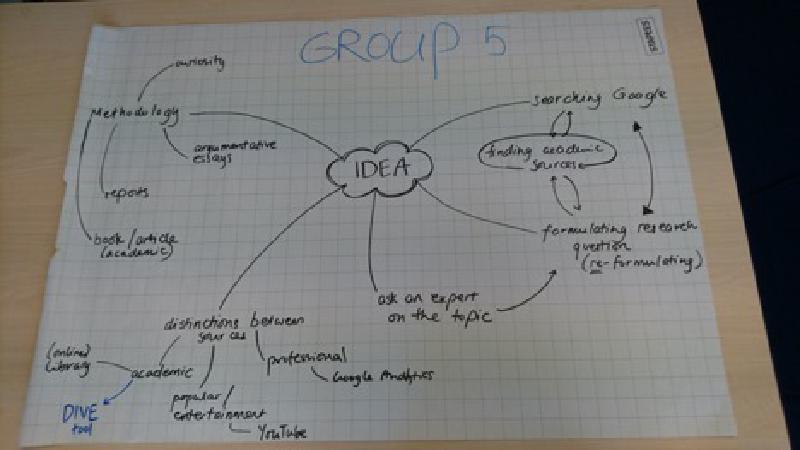 GROUP 5
curiosity
Methodology
argumentative
essays
reports
book/article
(academic)
IDEA
searching Google
finding academic
sources
formulating research
question
(re-formulating)
ask an expert
on the topic
distinctions between
sources
(online)
library
academic
DIVE
tool
popular/
entertainment
YouTube
professional
Google Analytics